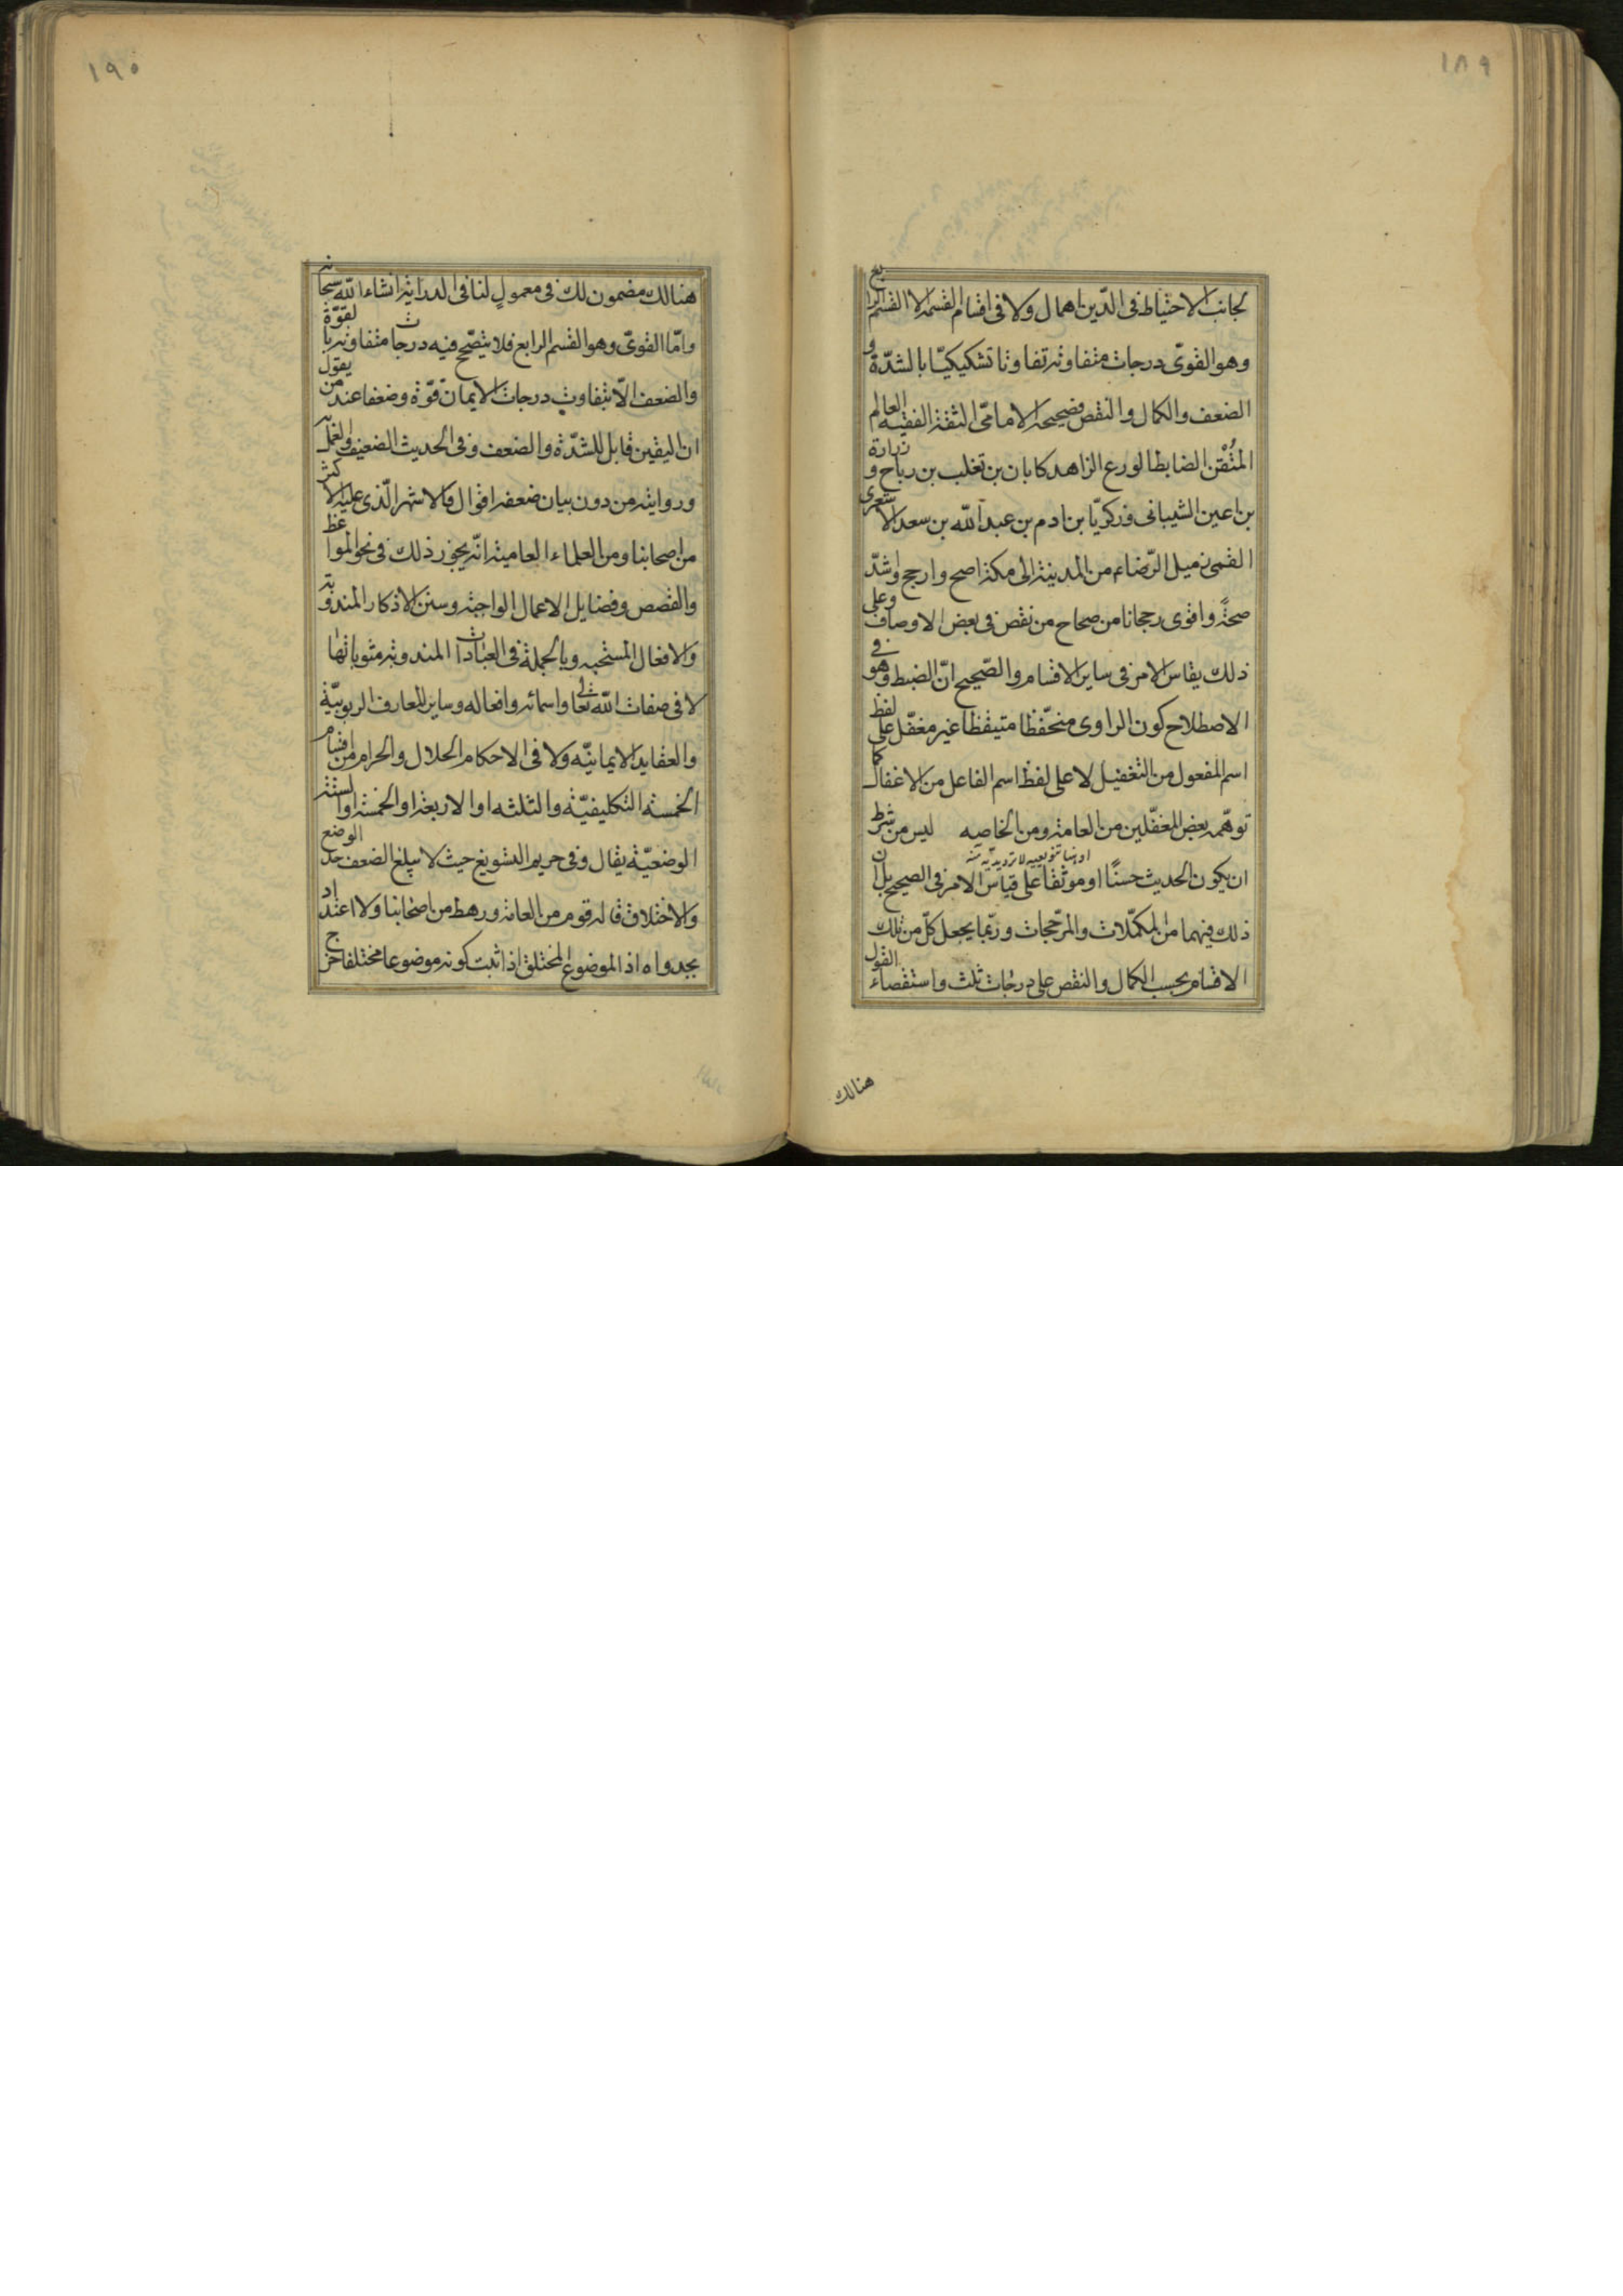 ١٨٩
لجانب الاحتياط فى الدّين اهمال ولا فى اقسام القسمة الا القسم الرابع
وهو القوىّ درجات متفاوتة تفاوتا تشكيكيّا بالشدّة و
الضعف والكمال والنقص فصحيحة الامامىّ الثقة الفقيه العالم
المتُقْن الضابط الورع الزاهد كابان بن تغلب بن رباح و زرارة
بن اعين الشيبانى وزكريّا بن ادم بن عبد الله بن سعد الاشعرى
القمى زميل الرّضاء من المدينة الى مكة اصح وارجح واشدّ
صحةً واقوى رجحانا من صحاح من نقص فى بعض الاوصاف وعلى
ذلك يقاس الامر فى ساير الاقسام والصّحيح انّ الضبط وهو فى
الاصطلاح كون الراوى متحّفظا متيقظا غير مغفّل على لفظ
اسم المفعول من التغفيل لا على لفظ اسم الفاعل من الاغفال كما
توهّمه بعض المغفّلين من العامة ومن الخاصه ليس من شرط
او هنا تنويعيه لا ترديديّه منه
ان يكون الحديث حسنًا او موثّقا على قياس الامر فى الصحيح بل ان
ذلك فيهما من المكمّلات والمرّجحات وربّما يجعل كلّ من تلك
الاقسام بحسب الكمال والنقص على درجات ثلث واستقصاء القول
هنالك
١٩٠
هنالك مضمون لك فى معمولٍ لنا فى الدراية انشاء الله سبحانه
وامّا القوىّ وهو القسم الرابع فلا يتصّحح فيه درجات متفاوتة بالقوّة
والضعف الّا بتفاوت درجات الايمان قوّة وضعفا عند من يقول
ان اليقين قابل للشدّة والضعف وفى الحديث الضعيف والعمل به
وروايته من دون بيان ضعفه اقوال فالاشهر الّذى عليه الاكثر
من اصحابنا ومن العلماء العامية انّه يجوز ذلك فى نحو المواعظ
والقصص وفضايل الاعمال الواجبة وسنن الاذكار المندوبة
والافعال المستحبه وبالجملة فى العبادات المندوبة ومثوباتها
لا فى صفات الله تعالى واسمائه وافعاله وساير المعارف الربوبيّة
والعقايد الايمانيّه ولا فى الاحكام الحلال والحرام من اقسام
الخمسة التكليفيّة والثلثه او الاربعة او الخمسة او الستة
الوضعيّة يقال وفى حريم التسويغ حيث لا يبلغ الضعف حدّ الوضع
والاختلاق قاله قوم من العامة ورهط من اصحابنا ولا اعتداد
بجدواه اذ الموضوع المختلق اذا ثبت كونه موضوعا مختلقا خرج